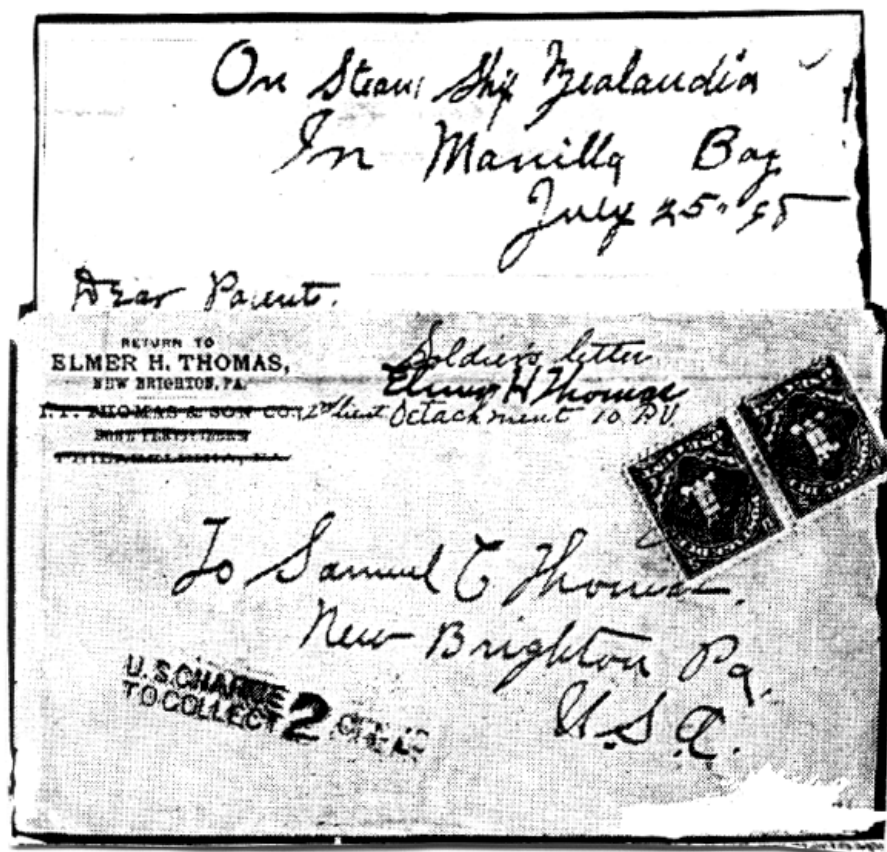 On Steam Ship Zealandia
In Manilla Bay
July 25"
Dear Parents.
RETURN TO
ELMER H. THOMAS,
NEW BRIGHTON, PA.
THOMAS & SON CO.
Soldier's letter
Elmer H Thomas
2nd Lieut Detachment 10 P.V.
To Samuel C Thomas.
New Brighton Pa.
U.S.A.
U.S. CHARGE
TO COLLECT 2 CENTS